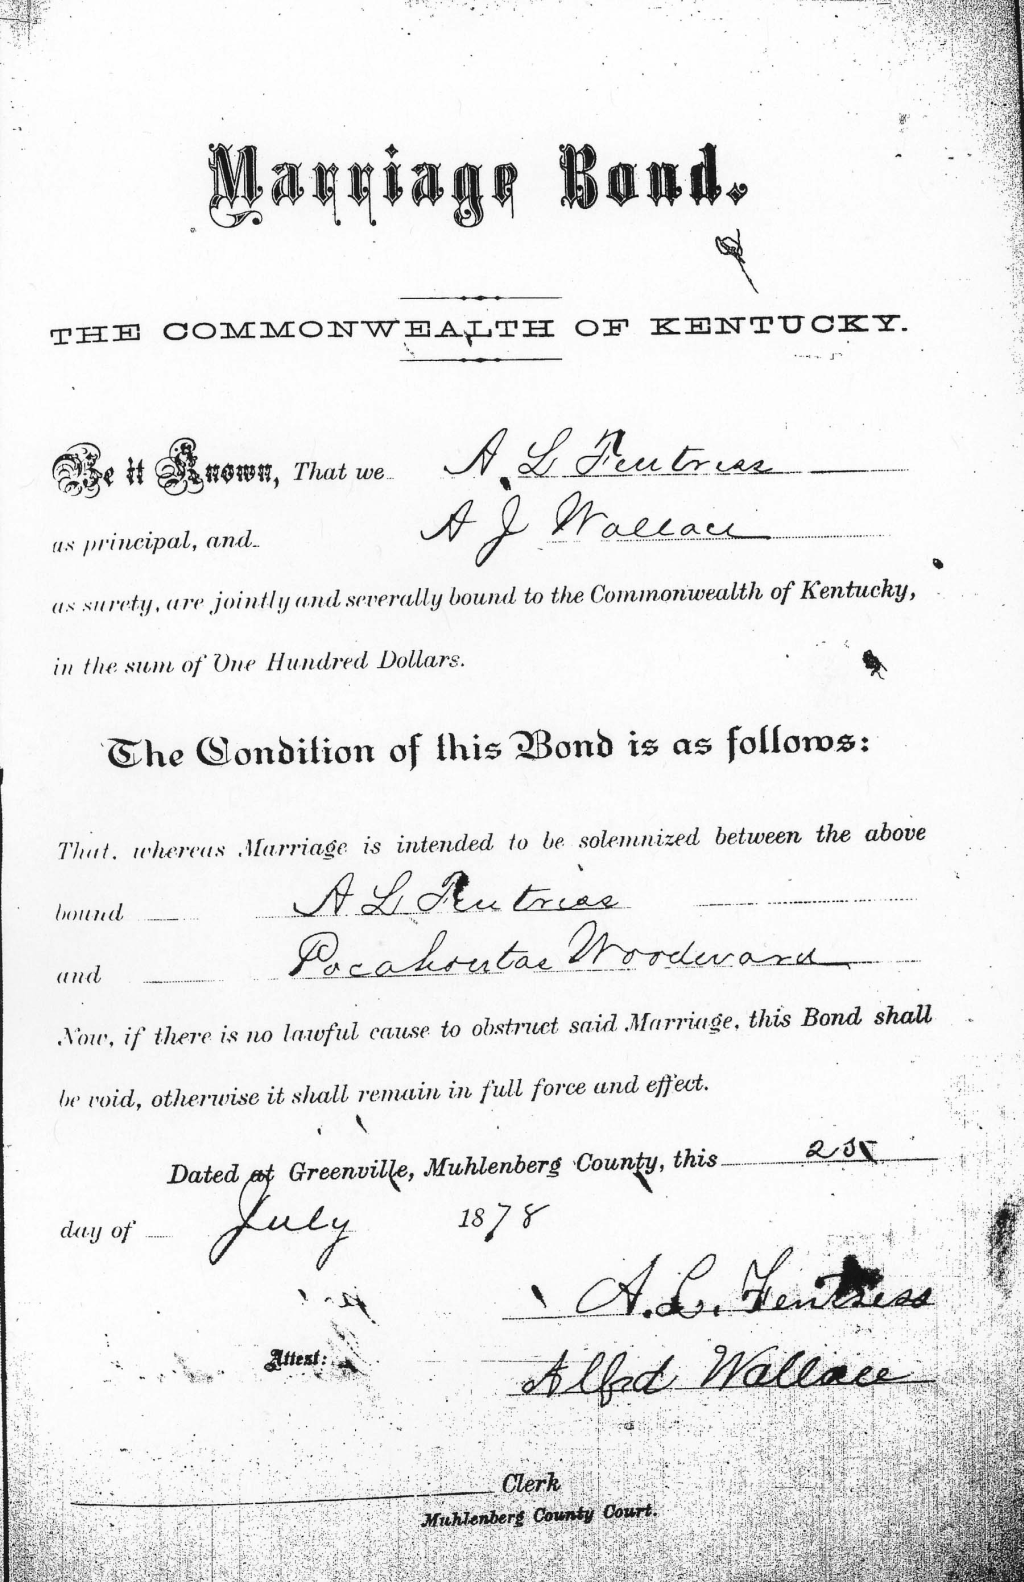 Marriage Bond.
THE COMMONWEALTH OF KENTUCKY.
Be it Known, That we A L Fentress
as principal, and A J Wallace
as surety, are jointly and severally bound to the Commonwealth of Kentucky,
in the sum of One Hundred Dollars.
The Condition of this Bond is as follows:
That, whereas Marriage is intended to be solemnized between the above
bound A L Fentriss
and Pocahontas Woodward
Now, if there is no lawful cause to obstruct said Marriage, this Bond shall
be void, otherwise it shall remain in full force and effect.
Dated at Greenville, Muhlenberg County, this 25
day of July 1878
A. L. Fentress
Attest: Alfrd Wallace
Clerk
Muhlenberg County Court.